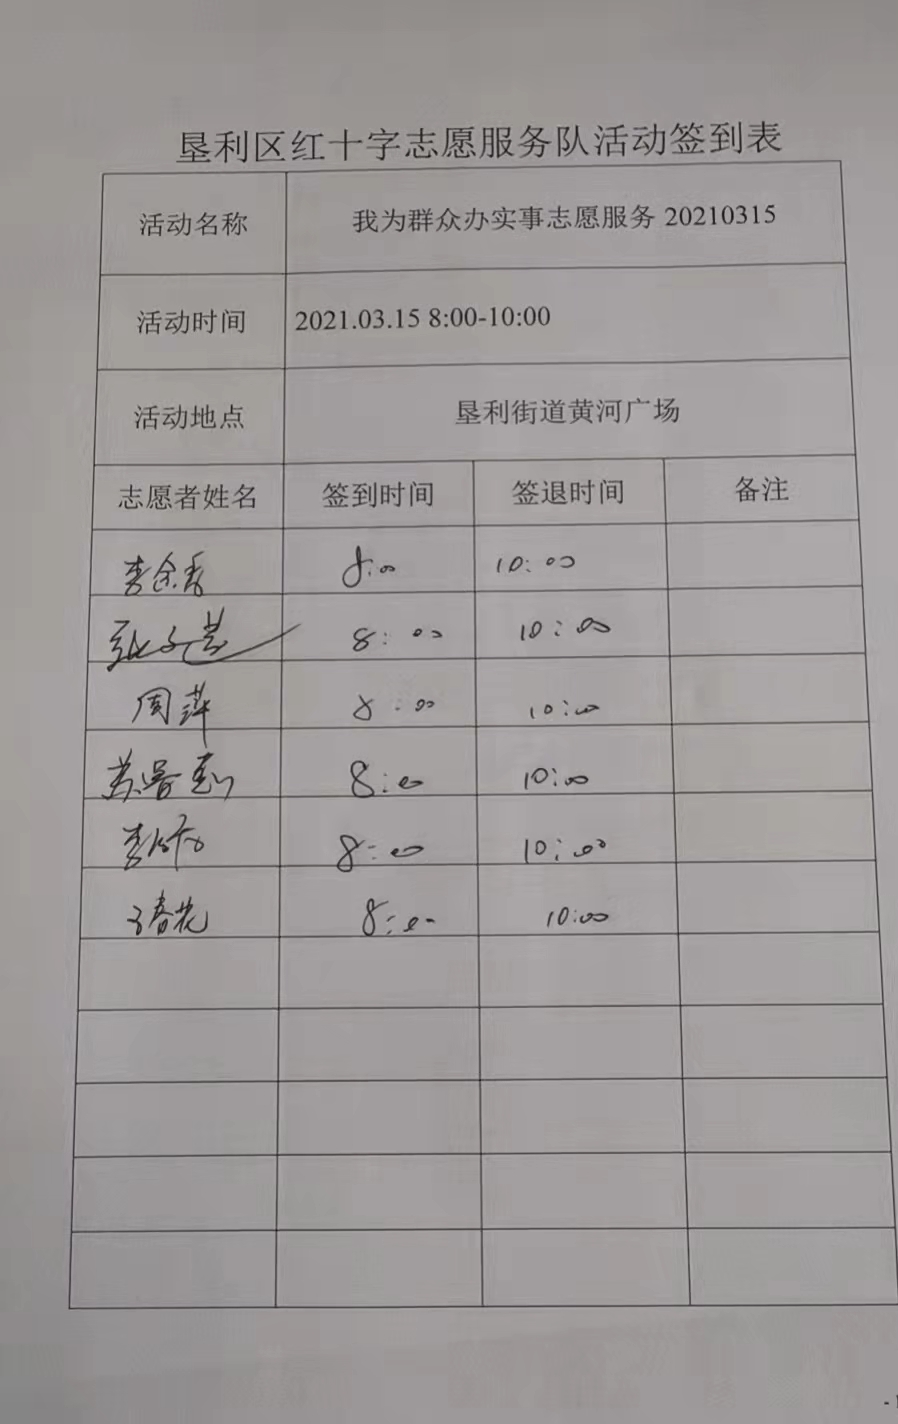 垦利区红十字志愿服务队活动签到表
活动名称 我为群众办实事志愿服务 20210315
活动时间 2021.03.15 8:00-10:00
活动地点 垦利街道黄河广场
志愿者姓名 签到时间 签退时间 备注
李余香 8:00 10:00
8:00 10:00
周萍 8:00 10:00
8:00 10:00
8:00 10:00
春花 8:00 10:00